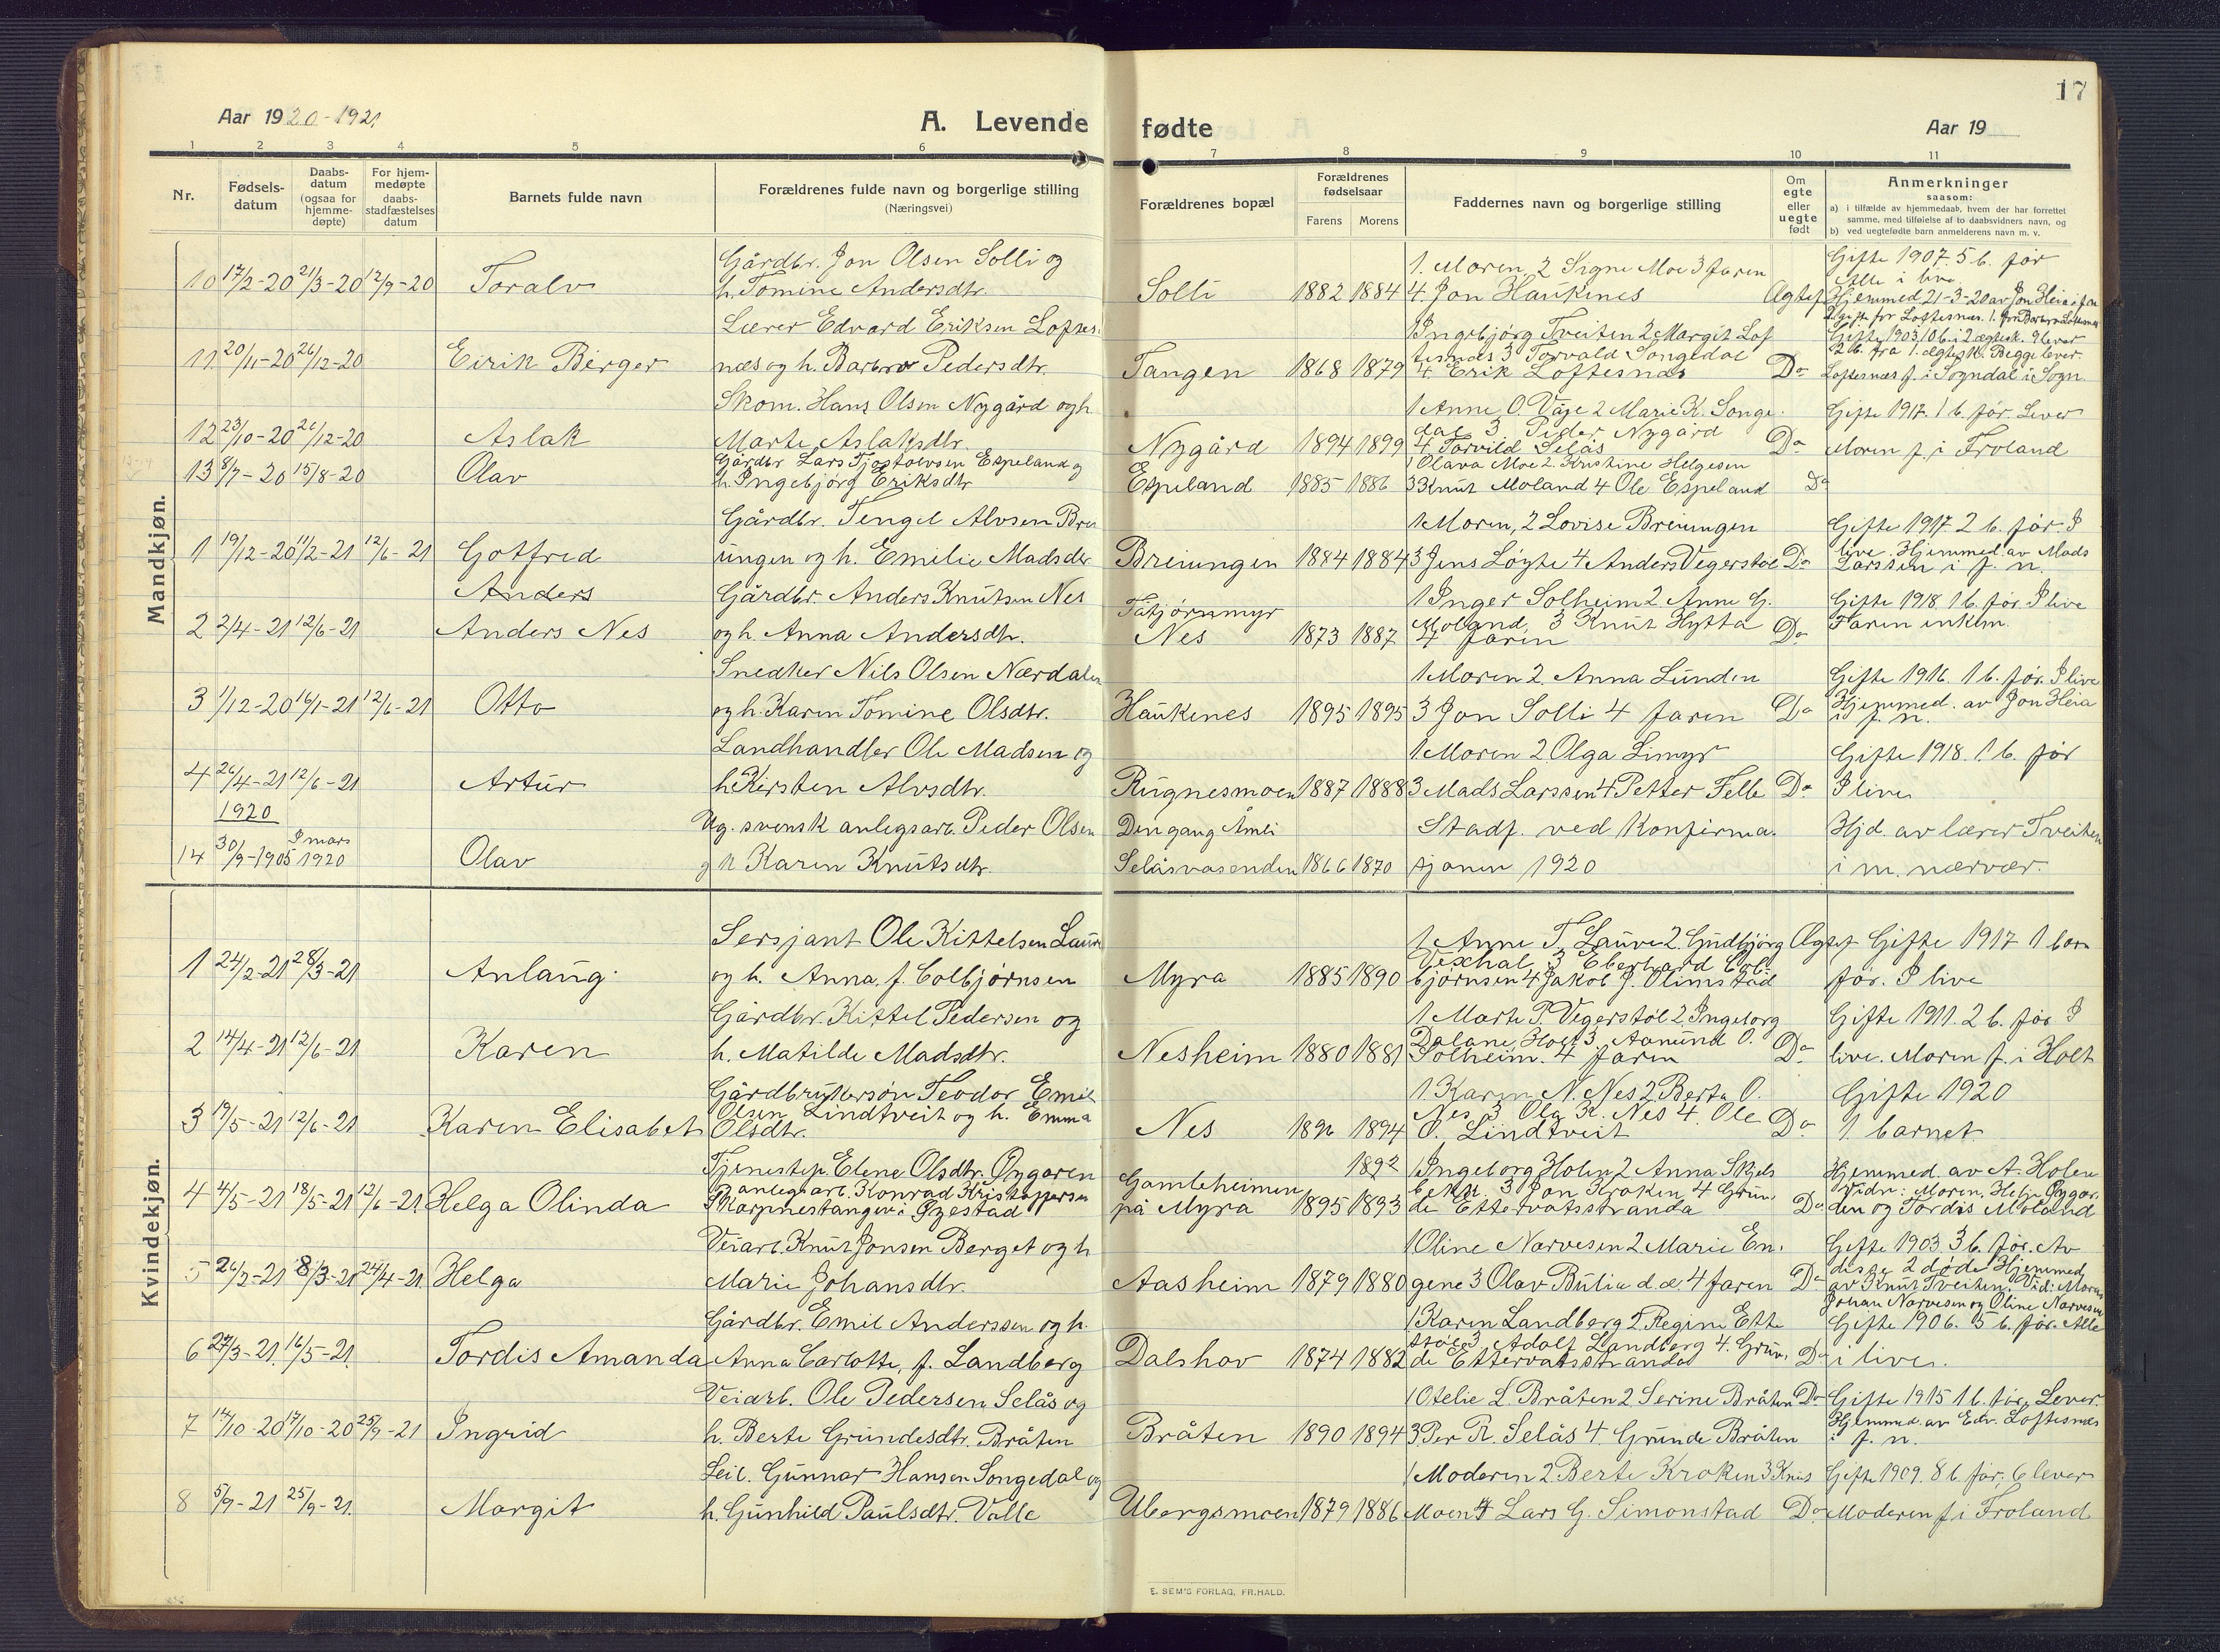 17
Aar 1920-1921
A. Levende fødte
Aar 19
1 2 3 4 5 6 7 8 9 10 11
Nr.
Fødsels-datum
Daabs-datum (ogsaa for hjemme-døpte)
For hjem-medøpte daabs-stadfæstelses datum
Barnets fulde navn
Forældrenes fulde navn og borgerlige stilling
(Næringsvei)
Forældrenes bopæl
Forældrenes fødselsaar
Farens Morens
Faddernes navn og borgerlige stilling
Om egte eller uegte født
Anmerkninger
saasom:
a) i tilfælde av hjemmedaab, hvem der har forrettet
samme, med tilføielse af to daabsvidners navn, og
b) ved uegtefødte barn anmelderens navn m. v.
Mandkjøn.
Gårdbr. Jon Olsen Solli og
1. Moren, 2 Signe Moe 3 faren
Gifte 1907. 5 b. før
Alle i live
10 17/2-20 21/3-20 12/9-20 Toralv h. Tomine Andersdtr. Solli 1882 1884 4. Jon Haukenes Ægtef. Hjemmed. 21-3-20 av Jon Heia i f. n.
Lærer Edvard Eriksen Loftes-
1 Ingebjørg Tveiten 2 Margit Lof
Gifte 1903. 10 b. i 2 ægtesk. 9 lever
tesnæs 3 Torvald Songedal
2 b. fra 1. ægtesk. Begge lever.
11. 20/11-20 26/12-20 Eirik Birger næs og h. Barbro Pedersdtr. Tangen 1868 1879 4. Erik Loftesnæs Do Loftesnæs f. i Sogndal i Sogn.
Skom. Hans Olsen Nygård og h.
1 Anne O. Våje 2 Marie K. Songe-
Gifte 1917. 1 b. før. Lever
dal 3 Peder Nygård
12 23/10-20 26/12-20 Aslak Marte Aslaksdtr. Nygård 1894 1899 4 Torvild Selås Do Moren f. i Froland
Gårdbr Lars Tjostolvsen Espeland og
1 Olava Moe 2. Kristine Helgesen
13 8/7-20 15/8-20 Olav h. Ingebjørg Eriksdtr Espeland 1885 1886 3 Knut Moland 4 Ole Espeland Do
Gårdbr. Tengel Alvsen Brei
1 Moren, 2 Lovise Breiungen
Gifte 1917 2 b. før. I
live. Hjemmed. av Mads
1 19/12-20 11/2-21 12/6-21 Gotfred ungen og h. Emilie Madsdtr Breiungen 1884 1884 3 Jens Løyte 4 Anders Vegerstøl Do Larssen i f. n.
Anders Gårdbr. Anders Knutsen Nes
1 Inger Solheim 2 Anne G.
Gifte 1918. 1 b. før. I live
Moland, 3 Knut Hytta
Faren enkem.
2 2/4-21 12/6-21 Anders Nes og h. Anna Andersdtr. Nes 1873 1887 4 Faren Do
Snedker Nils Olsen Nærdalen
1 Moren 2. Anna Lunden
Gifte 1916. 1 b. før. I live
3 1/12-20 16/1-21 12/6-21 Otto og h. Karen Tomine Olsdtr. Haukenes 1895 1895 3 Jon Solli 4 faren Do Hjemmed. av Jon Heia
i f. n.
Landhandler Ole Madsen og
1 Moren 2 Olga Limyr
Gifte 1918. 1 b. før
4 26/4-21 12/6-21 Artur h. Kirsten Alvsdtr. Rugnesmoen 1887 1888 3 Mads Larssen 4 Petter Felle Do I live
1920
Ug. svensk anlegsarb. Peder Olsen Dengang Åmli
Stadf. ved Konfirma-
Hjd. av lærer Tveiten
14 30/9-1905 I mars 1920 Olav og h Karen Knutsdtr. Selåsvasenden 1866 1870 sjonen 1920 i m. nærvær.
Kvindekjøn.
Sersjant Ole Kittelsen Lauve
1 Anne T. Lauve 2. Gudbjørg Ægtef Gifte 1917 1 barn
Vexhal 3 Eberhard Col-
1 24/2-21 28/3-21 Anlaug og h. Anna, f. Colbjørnsen Myra 1885 1890 bjørnsen 4 Jakob J. Olimstad før. I live
Gårdbr. Kittel Pedersen og
1 Marte P. Vegerstøl 2 Ingeborg
Gifte 1911. 2 b. før I
Dalane, Holt 3. Aamund O.
2 14/4-21 12/6-21 Karen h. Matilde Madsdtr. Nesheim 1880 1881 Solheim. 4 faren Do live. Moren f. i Holt
Gårdbrukersøn Teodor Emil
1 Karen N. Nes 2 Berta O.
Gifte 1920
Olsen Lindtveit og h. Emma
Nes 3 Ola K. Nes 4. Ole
3 19/5-21 12/6-21 Karen Elisabet Olsdtr. Nes 1896 1894 O. Lindtveit Do 1. barnet
Tjenestep. Elene Olsdtr. Øygaren
1892 1 Ingeborg Holen 2 Anna Skjels
Hjemmed. av A. Holen
anlegsarb. Konrad Kristoffersen
Gamleheimen
bekk. 3 Jon Kroken 4 Grun-
Vidn: Moren, Helje Øygar-
4 4/5-21 18/5-21 12/6-21 Helga Olinda Skarpnestangen i Øyestad på Myra 1895 1893 de Ettervatsstranda Do den og Tordis Moland
Veiarb. Knut Jonsen Berget og h
1 Oline Narvesen 2 Marie En-
Gifte 1903. 3 b. før. Av
disse 2 døde. Hjemmed.
5 26/2-21 8/3-21 24/4-21 Helga Marie Johansdtr. Aasheim 1879 1880 gene 3 Olav Bulie d. æ. 4 faren Do av Knut Tveiten. Vid: Moren
Johan Narvesen og Oline Narvesen
Gårdbr. Emil Anderssen og h.
1 Karen Landberg 2. Regine Ette
Gifte 1906. 5 b. før. Alle
støl 3 Adolf Landberg 4. Grun-
6 27/3-21 16/5-21 Tordis Amanda Anna Carlotte, f. Landberg Dalshov 1874 1882 de Ettervatsstranda Do i live.
Veiarb. Ole Pedersen Selås og
1 Otelie L. Bråten 2 Serine Bråten Do Gifte 1915 1 b. før, Lever.
Hjemmed. av Edv. Loftesnæs
7 14/10-20 17/10-20 25/9-21 Ingrid h. Berte Grundesdtr. Bråten Bråten 1890 1894 3 Per R. Selås 4. Grunde Bråten i f. n.
Leil. Gunnar Hansen Songedal og
1 Moderen 2 Berte Kroken 3 Knut Gifte 1909. 8 b. før. 6 lever
8 5/9-21 25/9-21 Margit h. Gunhild Paulsdtr. Valle Ubergsmoen 1879 1886 Moen 4 Lars G. Simonstad Do Moderen f. i Froland
E. SEM'S FORLAG, FR.HALD.